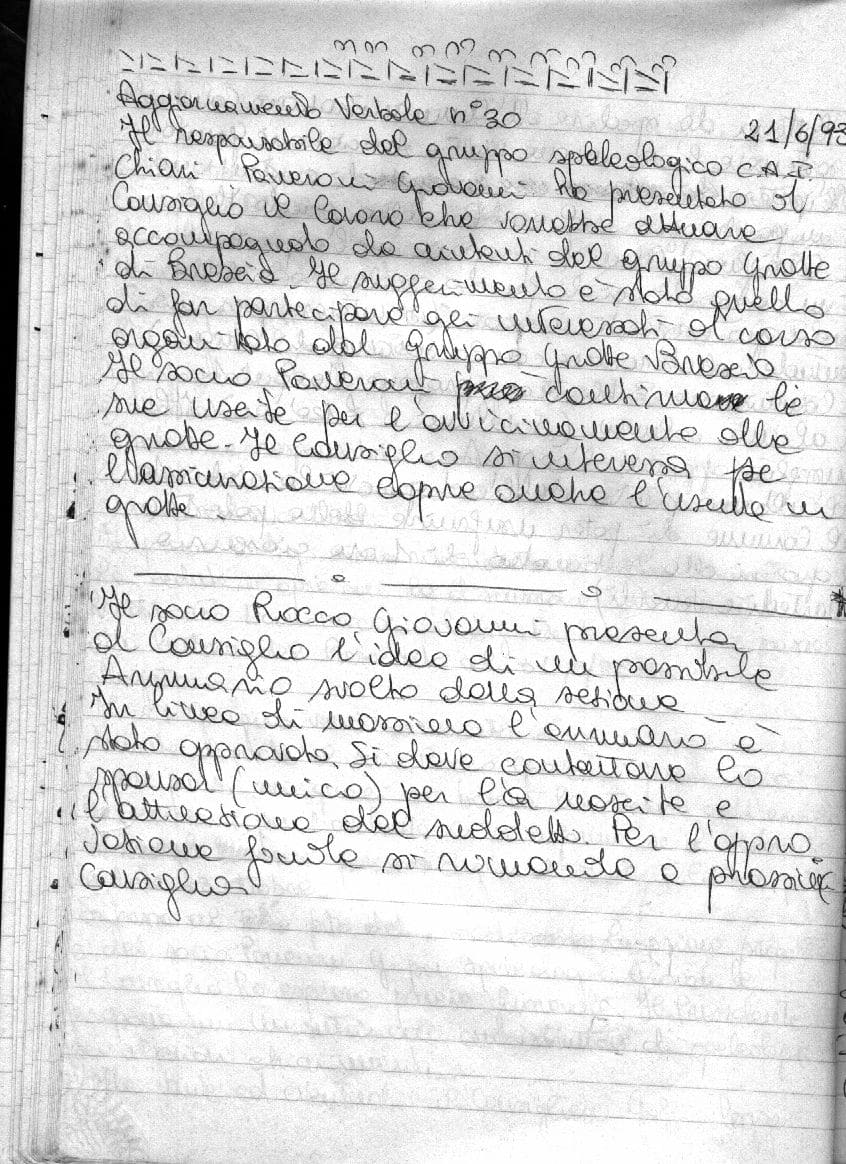 Aggiornamento Verbale n° 30
21/6/93
Il responsabile del gruppo speleologico C.A.I.
Chiari Paveroni Giovanni ha presentato al
Consiglio il lavoro che vorrebbe attuare
accompagnato da aiutanti del gruppo Grotte
di Brescia. Il suggerimento è stato quello
di far partecipare gli interessati al corso
organizzato dal gruppo Grotte Brescia
Il socio Paveroni continua le
sue uscite per l'avvicinamento alle
grotte. Il Consiglio si interessa se
l'assicurazione copre anche l'uscita in
grotte.
Il socio Rocco Giovanni presenta
al Consiglio l'idea di un possibile
Annuario svolto dalla sezione
In linea di massima l'annuario è
stato approvato. Si deve contattare lo
sponsor (unico) per la nascita e
l'attuazione del suddetto. Per l'appro
vazione finale si rimanda a prossimo
Consiglio.